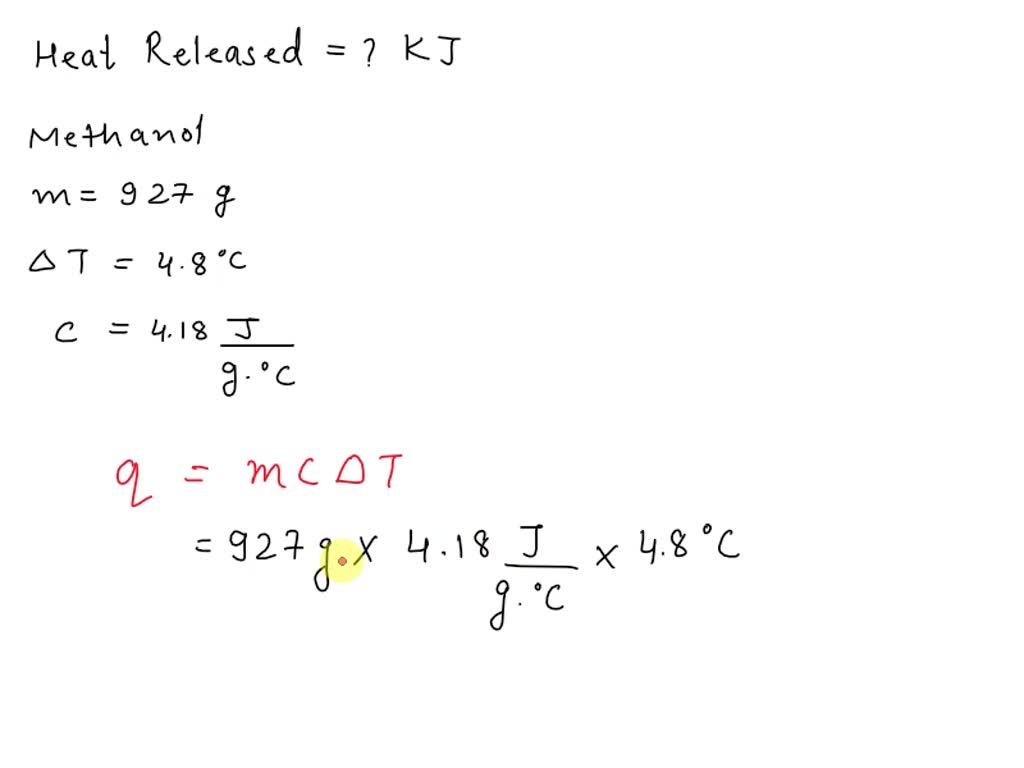 Heat Released = ? KJ
Methanol
m = 927 g
Δ T = 4.8 °C
C = 4.18 J / g. °C
q = m C Δ T
= 927 g. x 4.18 J / g. °C x 4.8 °C